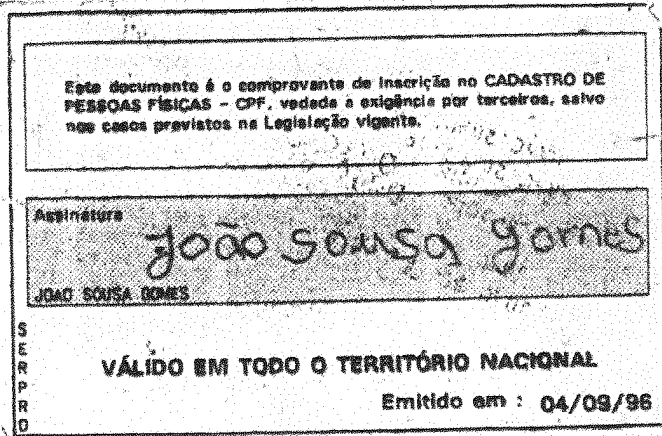 Este documento é o comprovante de inscrição no CADASTRO DE
PESSOAS FÍSICAS - CPF, vedada a exigência por terceiros, salvo
nos casos previstos na Legislação vigente.
Assinatura
João Sousa Gomes
JOAO SOUSA GOMES
SERPRO
VÁLIDO EM TODO O TERRITÓRIO NACIONAL
Emitido em : 04/09/96